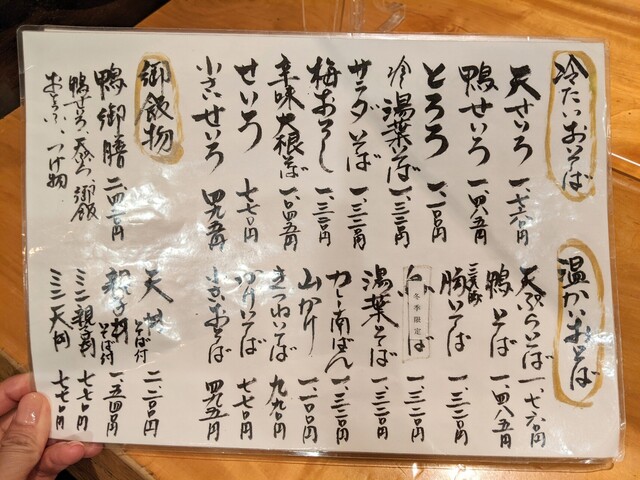 冷たいおそば
天せいろ 一、七六〇円
鴨せいろ 一、四八五円
とろろ 一、一〇〇円
冷湯葉そば 一、三二〇円
サラダそば 一、三二〇円
梅おろし 一、三二〇円
辛味大根そば 一、〇四五円
せいろ 七七〇円
小さいせいろ 四九五円
御飯物
鴨御膳 二、四二〇円
鴨せいろ、天ぷら、御飯
つけ物
温かいおそば
天ぷらそば 一、七六〇円
鴨そば 一、四八五円
そば 一、三二〇円
冬季限定
そば 一、三二〇円
湯葉そば 一、三二〇円
カレー南ばん 一、三二〇円
山かけ 一、一〇〇円
きつねそば 九九〇円
かけそば 七七〇円
小さいおそば 四九五円
天丼 そば付 二、二〇〇円
親子丼 そば付 一、五四〇円
ミニ親子丼 七七〇円
ミニ天丼 七七〇円